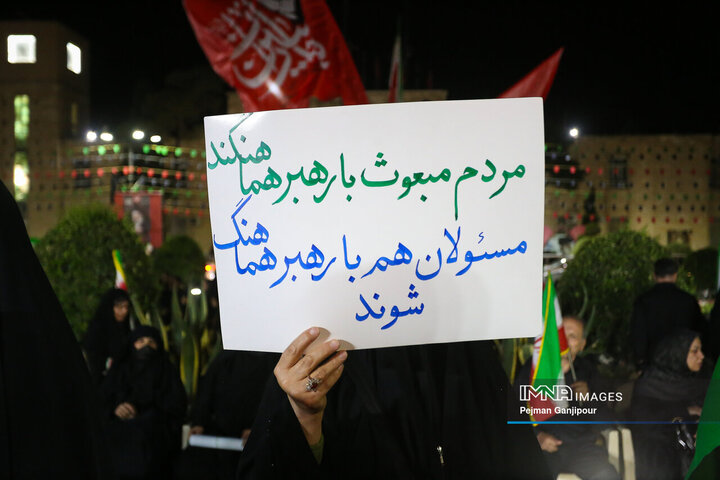 مردم مبعوث با رهبر هماهنگند
مسئولان هم با رهبر هماهنگ
شوند
IMNA IMAGES
Pejman Ganjipour